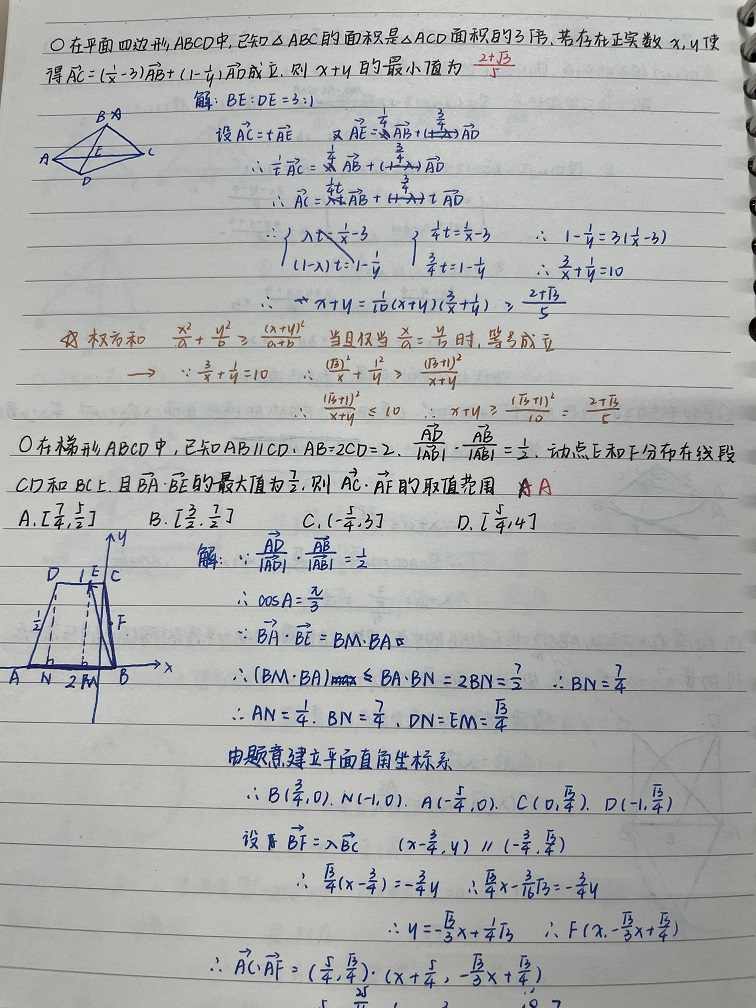 ○在平面四边形ABCD中,已知△ABC的面积是△ACD面积的3倍,若存在正实数x,y使
得AC=(1/x-3)AB+(1-1/y)AD成立,则x+y的最小值为 (2+√3)/5
解:BE:DE=3:1
B A
A E C
D
设AC=tAE 又AE=1/4 AB+3/4 AD
∴1/t AC=1/4 AB+3/4 AD
∴AC=1/4t AB+3/4 t AD
∴{λt=1/x-3 {1/4t=1/x-3 ∴1-1/y=3(1/x-3)
(1-λ)t=1-1/y 3/4t=1-1/y ∴3/x+1/y=10
∴x+y=1/10(x+y)(3/x+1/y)≥(2+√3)/5
☆权方和 x²/a+y²/b≥(x+y)²/(a+b) 当且仅当x/a=y/b时,等号成立
→ ∵3/x+1/y=10 ∴(√3)²/x+1²/y≥(√3+1)²/(x+y)
∴(√3+1)²/(x+y)≤10 ∴x+y≥(√3+1)²/10=(2+√3)/5
○在梯形ABCD中,已知AB∥CD,AB=2CD=2,AD/|AD|·AB/|AB|=1/2,动点E和F分布在线段
CD和BC上,且BA·BE的最大值为7/2,则AC·AF的取值范围 A
A.[7/4,5/2] B.[3/2,7/2] C.(-5/4,3] D.[5/4,4]
y
D 1 E C
1/2 F
A N 2 M B x
解:∵AD/|AD|·AB/|AB|=1/2
∴cosA=π/3
∵BA·BE=BM·BA
∴(BM·BA)max≤BA·BN=2BN=7/2 ∴BN=7/4
∴AN=1/4,BN=7/4,DN=EM=√3/4
由题意建立平面直角坐标系
∴B(3/4,0),N(-1,0),A(-5/4,0),C(0,√3/4),D(-1,√3/4)
设BF=λBC (x-3/4,y)∥(-3/4,√3/4)
∴√3/4(x-3/4)=-3/4y ∴√3/4x-3/16√3=-3/4y
∴y=-√3/3x+1/4√3 ∴F(x,-√3/3x+√3/4)
∴AC·AF=(5/4,√3/4)·(x+5/4,-√3/3x+√3/4)